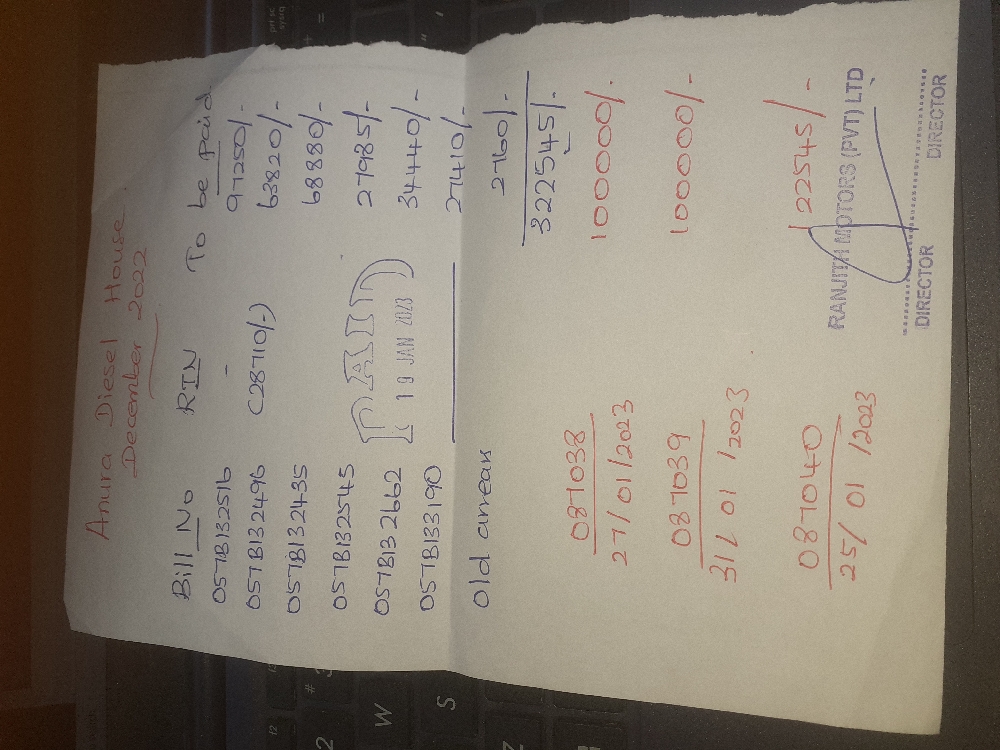 Anura Diesel House
December 2022
Bill No RTN To be paid
057B132516 - 97250/-
057B132496 (28710/-) 63820/-
057B132435 68880/-
057B132545 27985/-
057B132662 34440/-
057B133190 27410/-
PAID
19 JAN 2023
Old arrears 2760/-
322545/-
087038 100000/-
27/01/2023
087039 100000/-
31/01/2023
087040 122545/-
25/01/2023
RANJITH MOTORS (PVT) LTD
DIRECTOR DIRECTOR